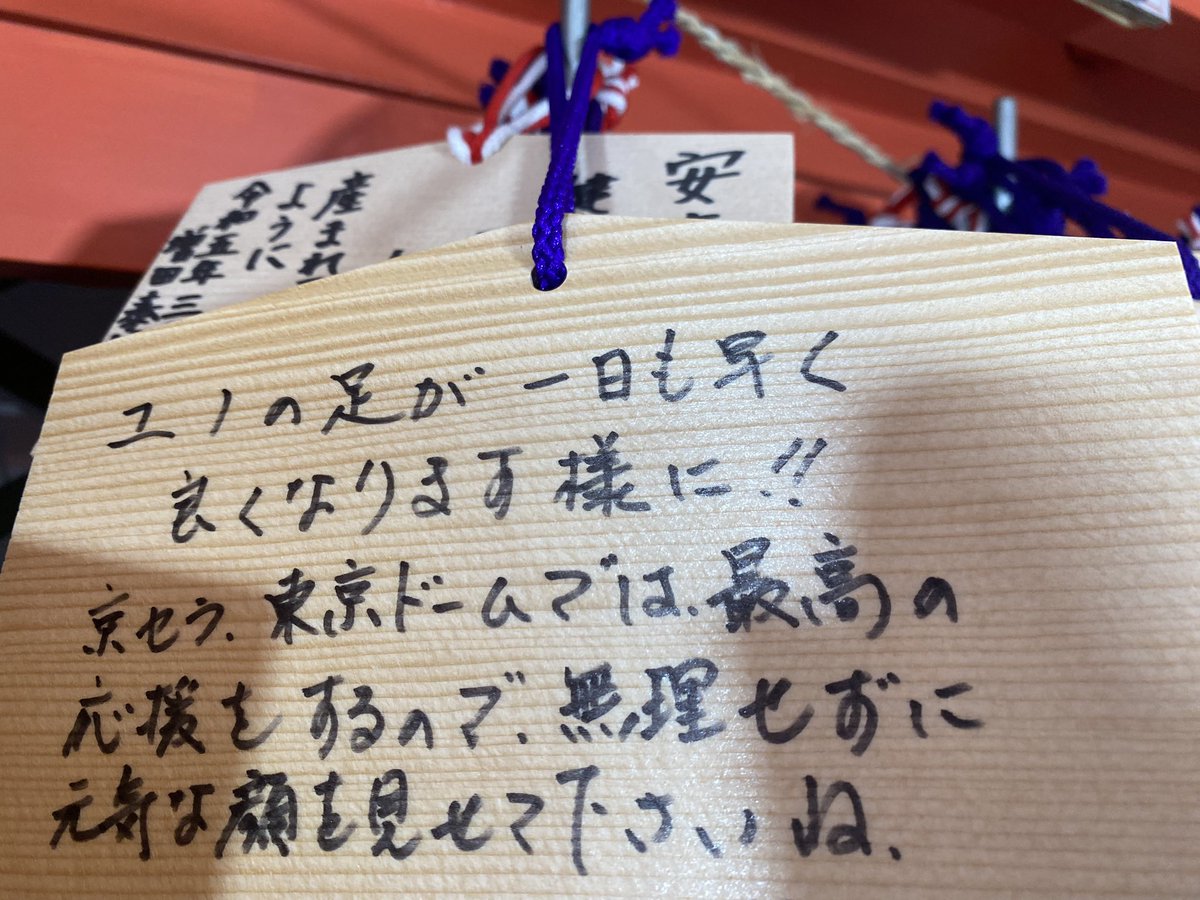 ユノの足が一日も早く
良くなります様に!!
京セラ、東京ドームでは、最高の
応援をするので、無理せずに
元気な顔を見せて下さいね、
安
健
産まれ
ように
令和五年三
増田